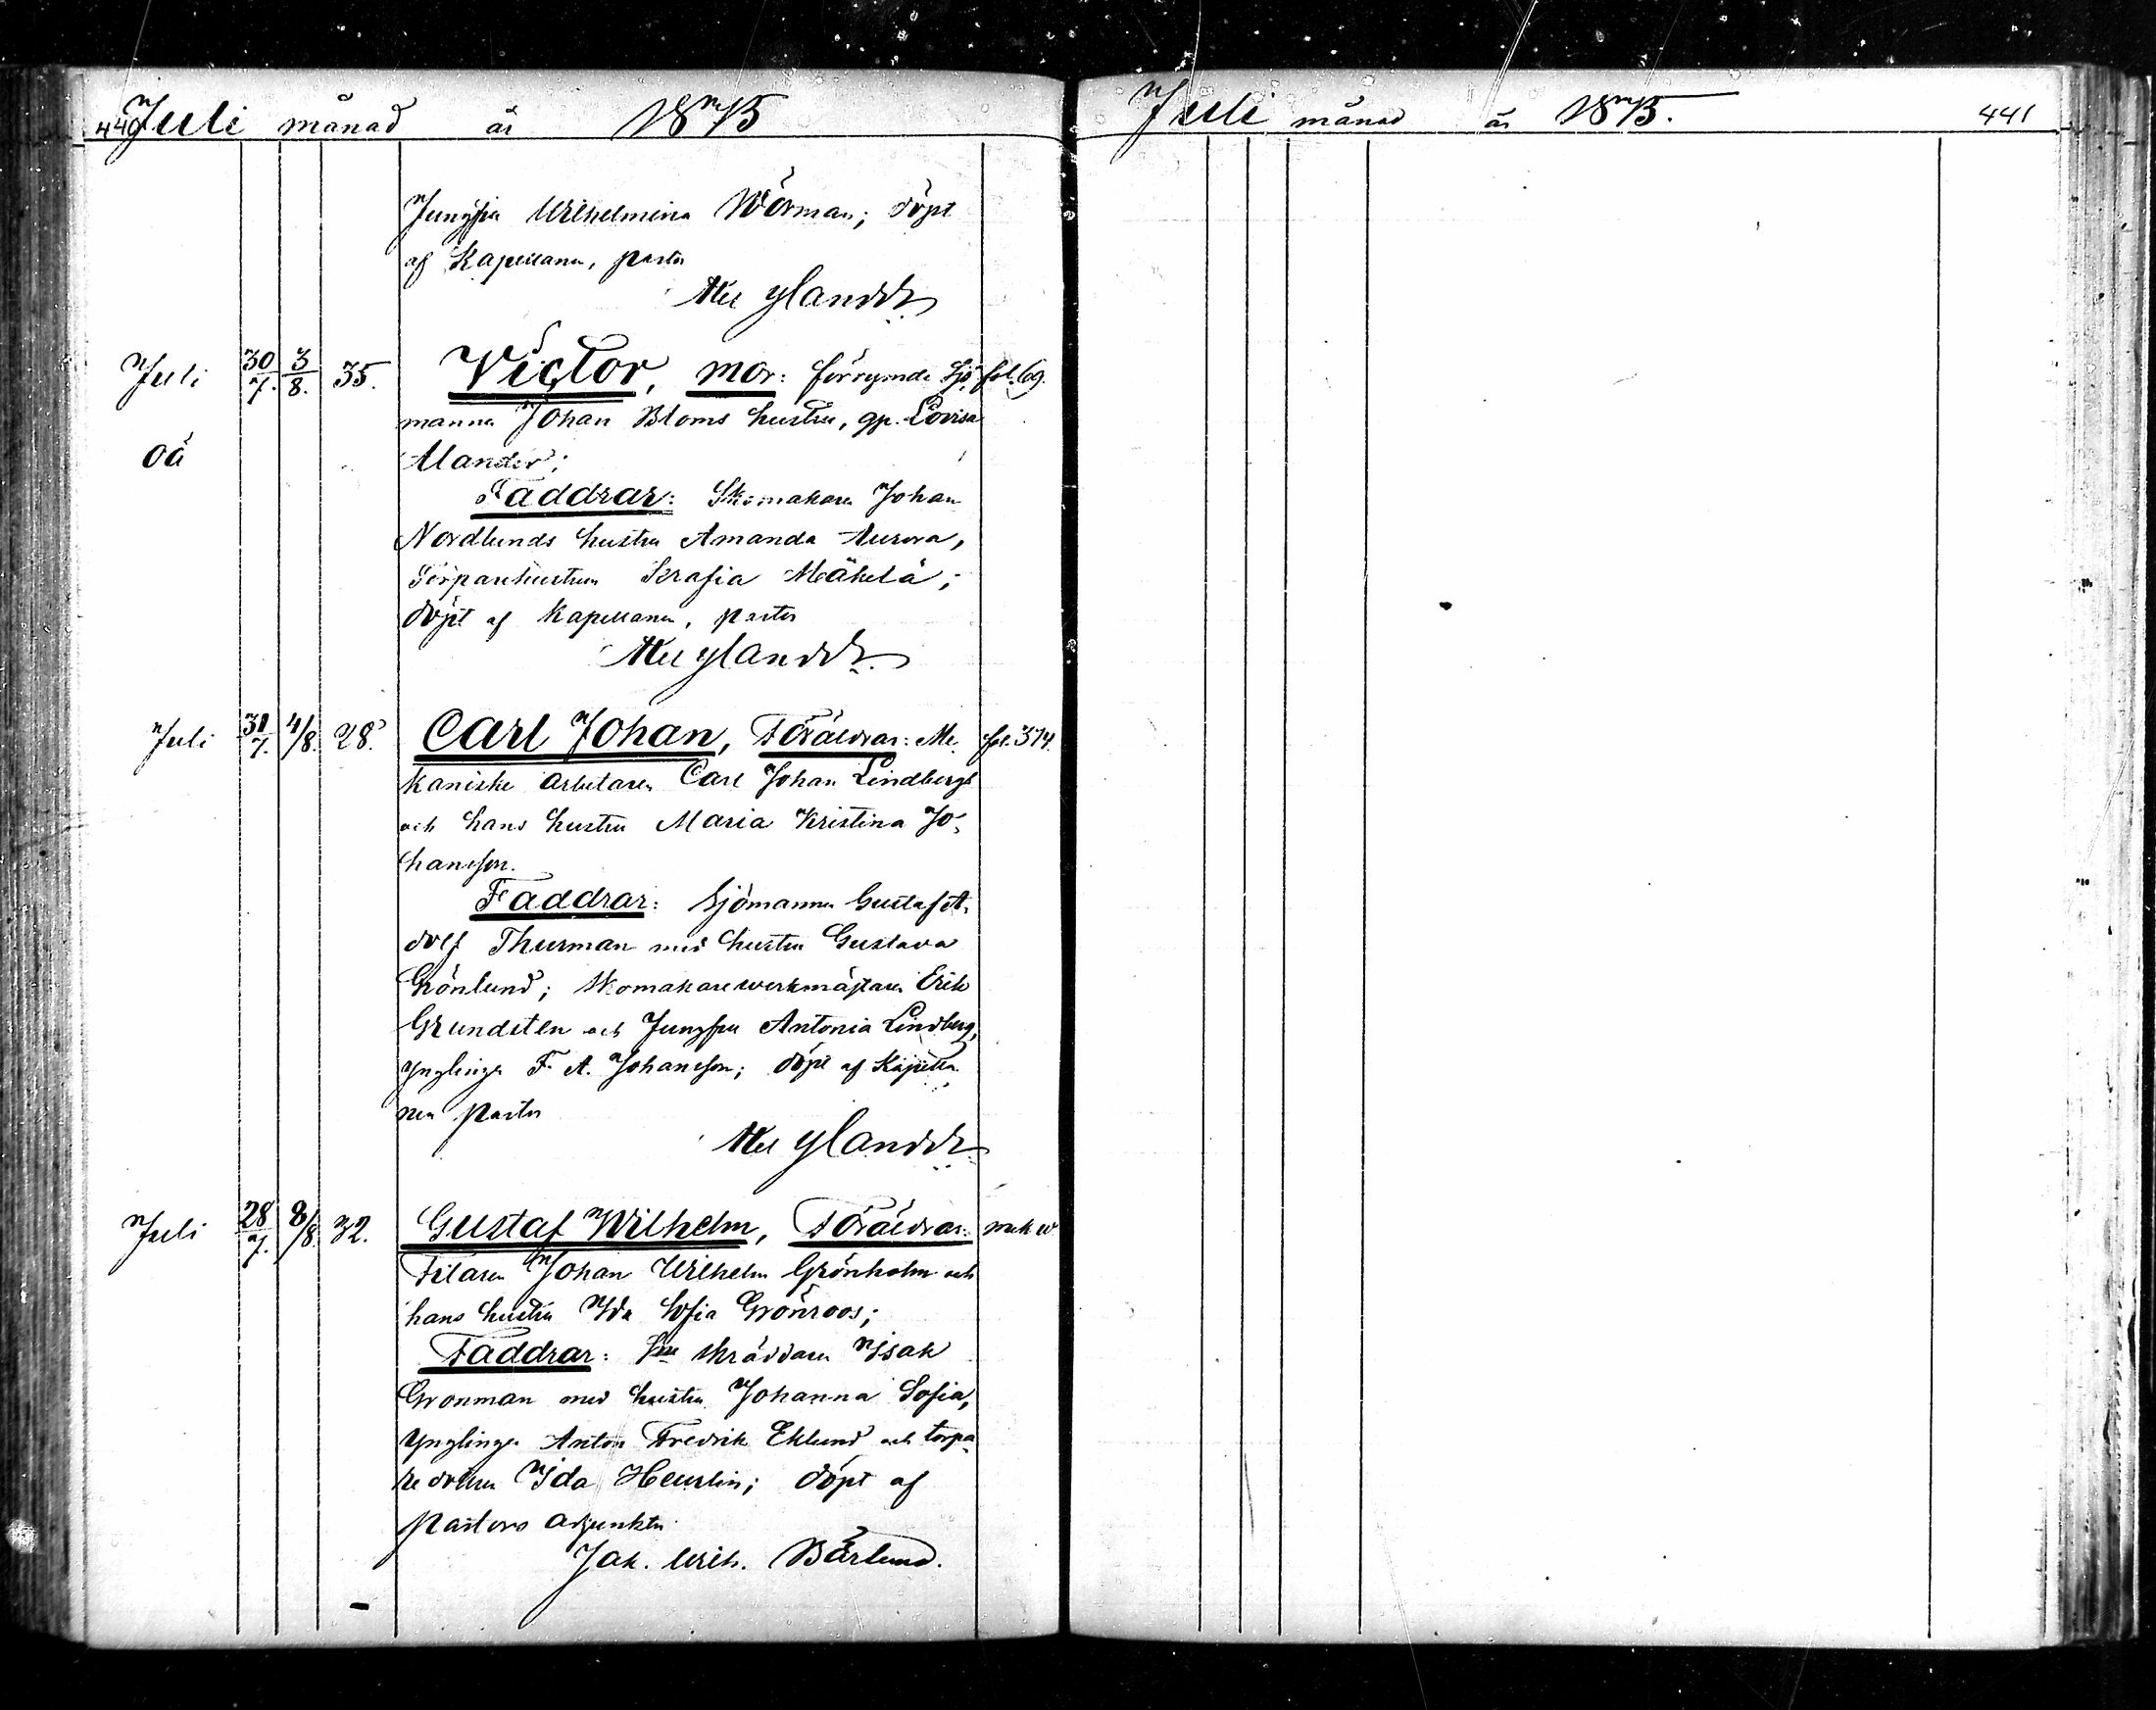 440 Juli månad år 1875
Jungfru Wilhelmina Wörman; döpt
af Kapellanen, pastor
Nylander
Juli 30/7. 3/8. 35. Victor, mor: förrymde Sjö- fol. 69.
mannen Johan Bloms hustru, gp. Lovisa
oä Alander;
Faddrar: Skomakaren Johan
Nordlunds hustru Amanda Aurora,
Torparehustrun Serafia Mäkelä;
döpt af Kapellanen, pastor
Nylander.
Juli 31/7. 4/8. 28. Carl Johan, Föräldrar: Me- fol. 374.
kaniske arbetaren Carl Johan Lindberg
och hans hustru Maria Kristina Jo-
hansson.
Faddrar: Sjömannen Gustaf A-
dolf Thurman med hustru Gustava
Grönlund; skomakarewerkmästaren Erik
Grundsten och Jungfru Antonia Lindberg,
ynglingen F. A. Johansson; döpt af Kapella-
nen pastor
Nylander
Juli 28/7. 8/8. 32. Gustaf Wilhelm, Föräldrar: mek w
Filaren Johan Wilhelm Grönholm och
hans hustru Ida Sofia Grönroos;
Faddrar: skräddaren Isak
Gronman med hustru Johanna Sofia,
Ynglingen Anton Fredrik Eklund och torpa-
re dottren Ida Heurlin; döpt af
pastors adjunkten
Jak. Wilh. Bärlund.
Juli månad år 1875. 441